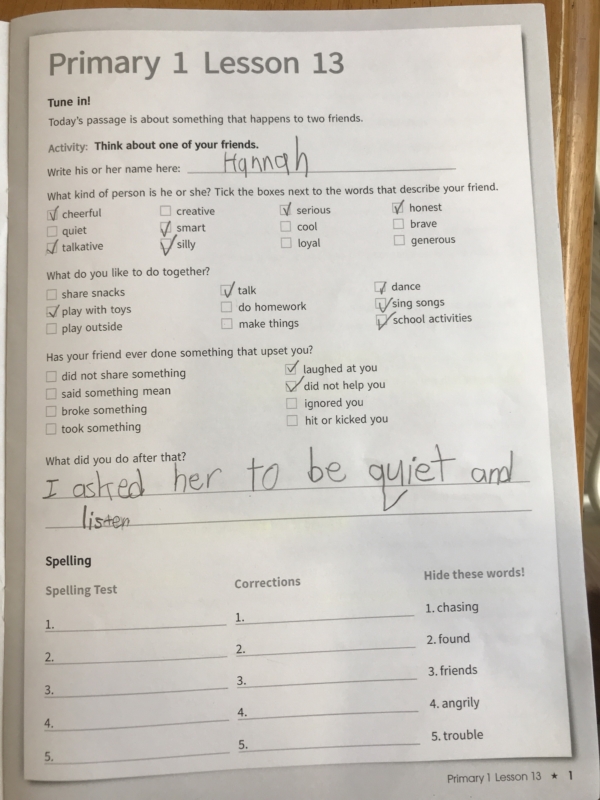 Primary 1 Lesson 13
Tune in!
Today's passage is about something that happens to two friends.
Activity: Think about one of your friends.
Write his or her name here: Hannah
What kind of person is he or she? Tick the boxes next to the words that describe your friend.
cheerful creative serious honest
quiet smart cool brave
talkative silly loyal generous
What do you like to do together?
share snacks talk dance
play with toys do homework sing songs
play outside make things school activities
Has your friend ever done something that upset you?
did not share something laughed at you
said something mean did not help you
broke something ignored you
took something hit or kicked you
What did you do after that?
I asked her to be quiet and
listen
Spelling
Spelling Test Corrections Hide these words!
1. 1. 1. chasing
2. 2. 2. found
3. 3. 3. friends
4. 4. 4. angrily
5. 5. 5. trouble
Primary 1 Lesson 13 ★ 1